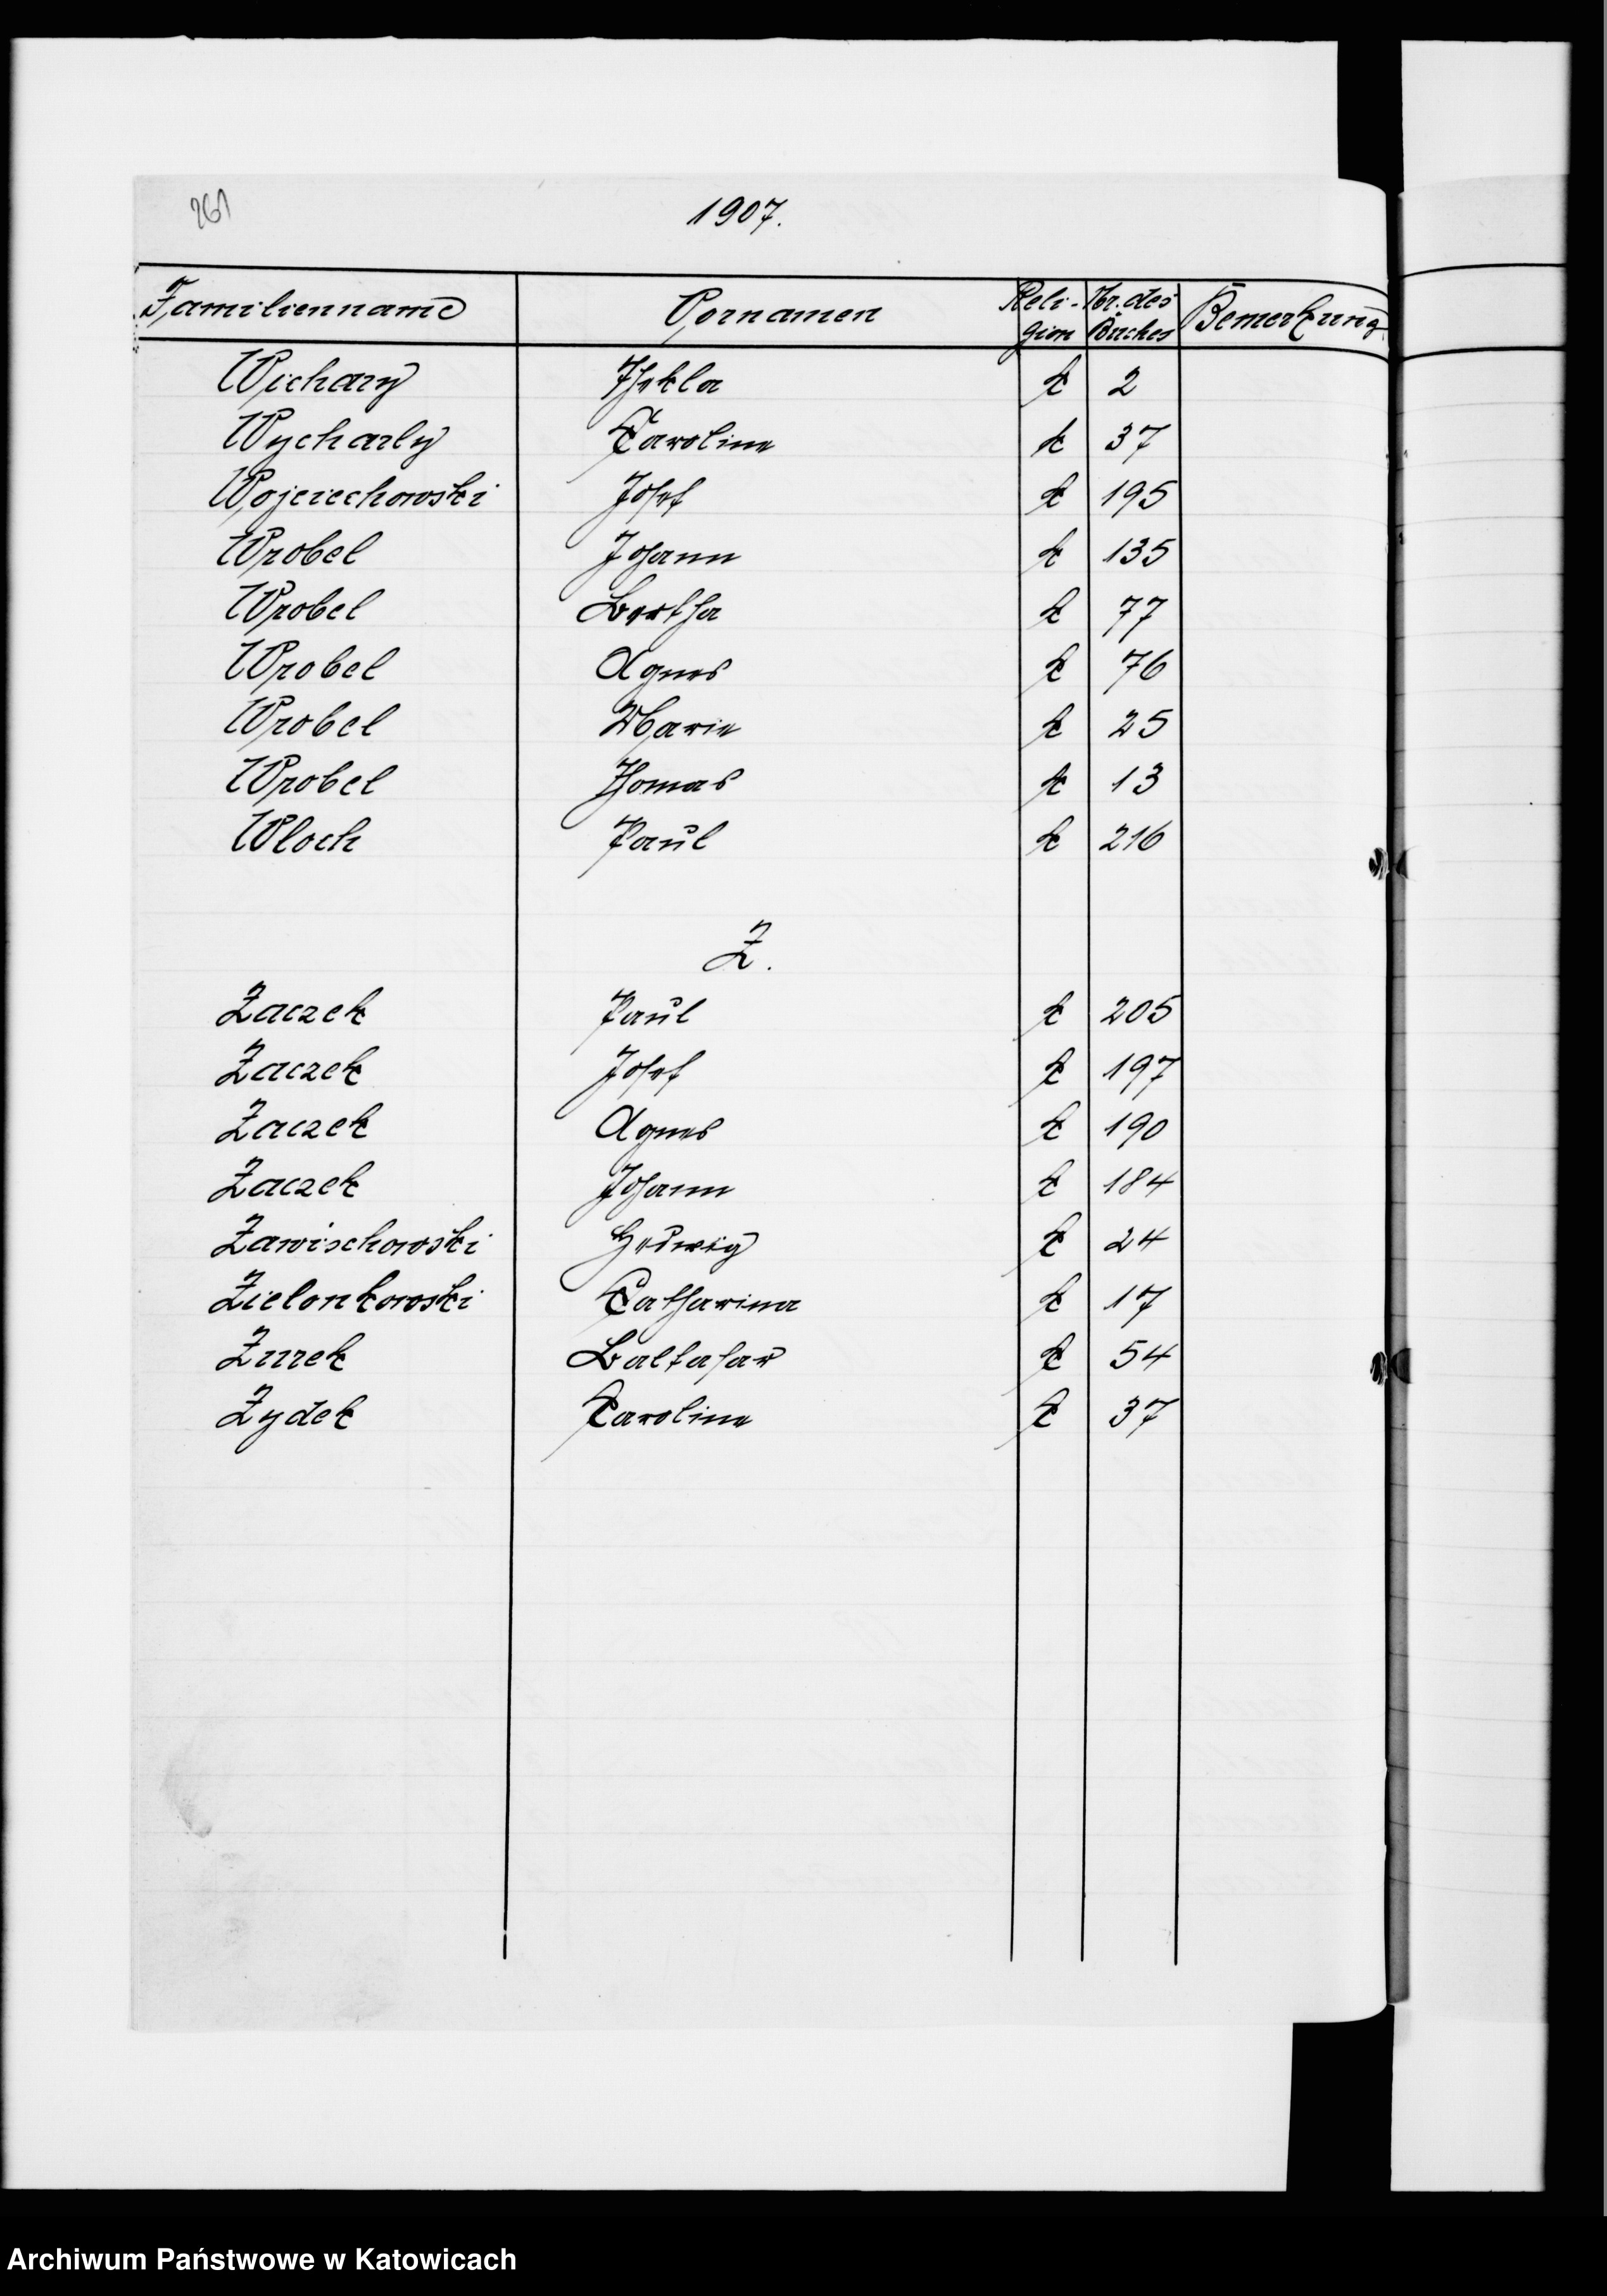 261
1907.
Familienname Vornamen Religion Nr. des Buches Bemerkung
Wichary Thekla k 2
Wycharly Karoline k 37
Wojciechowski Josef k 195
Wrobel Johann k 135
Wrobel Bertha k 77
Wrobel Agnes k 76
Wrobel Marie k 25
Wrobel Thomas k 13
Wloch Paul k 216
Z.
Zaczek Paul k 205
Zaczek Josef k 197
Zaczek Agnes k 190
Zaczek Johann k 184
Zawischowski Hedwig k 24
Zielonkowski Katharina k 17
Zurek Baltasar k 54
Zydek Karoline k 37
Archiwum Państwowe w Katowicach